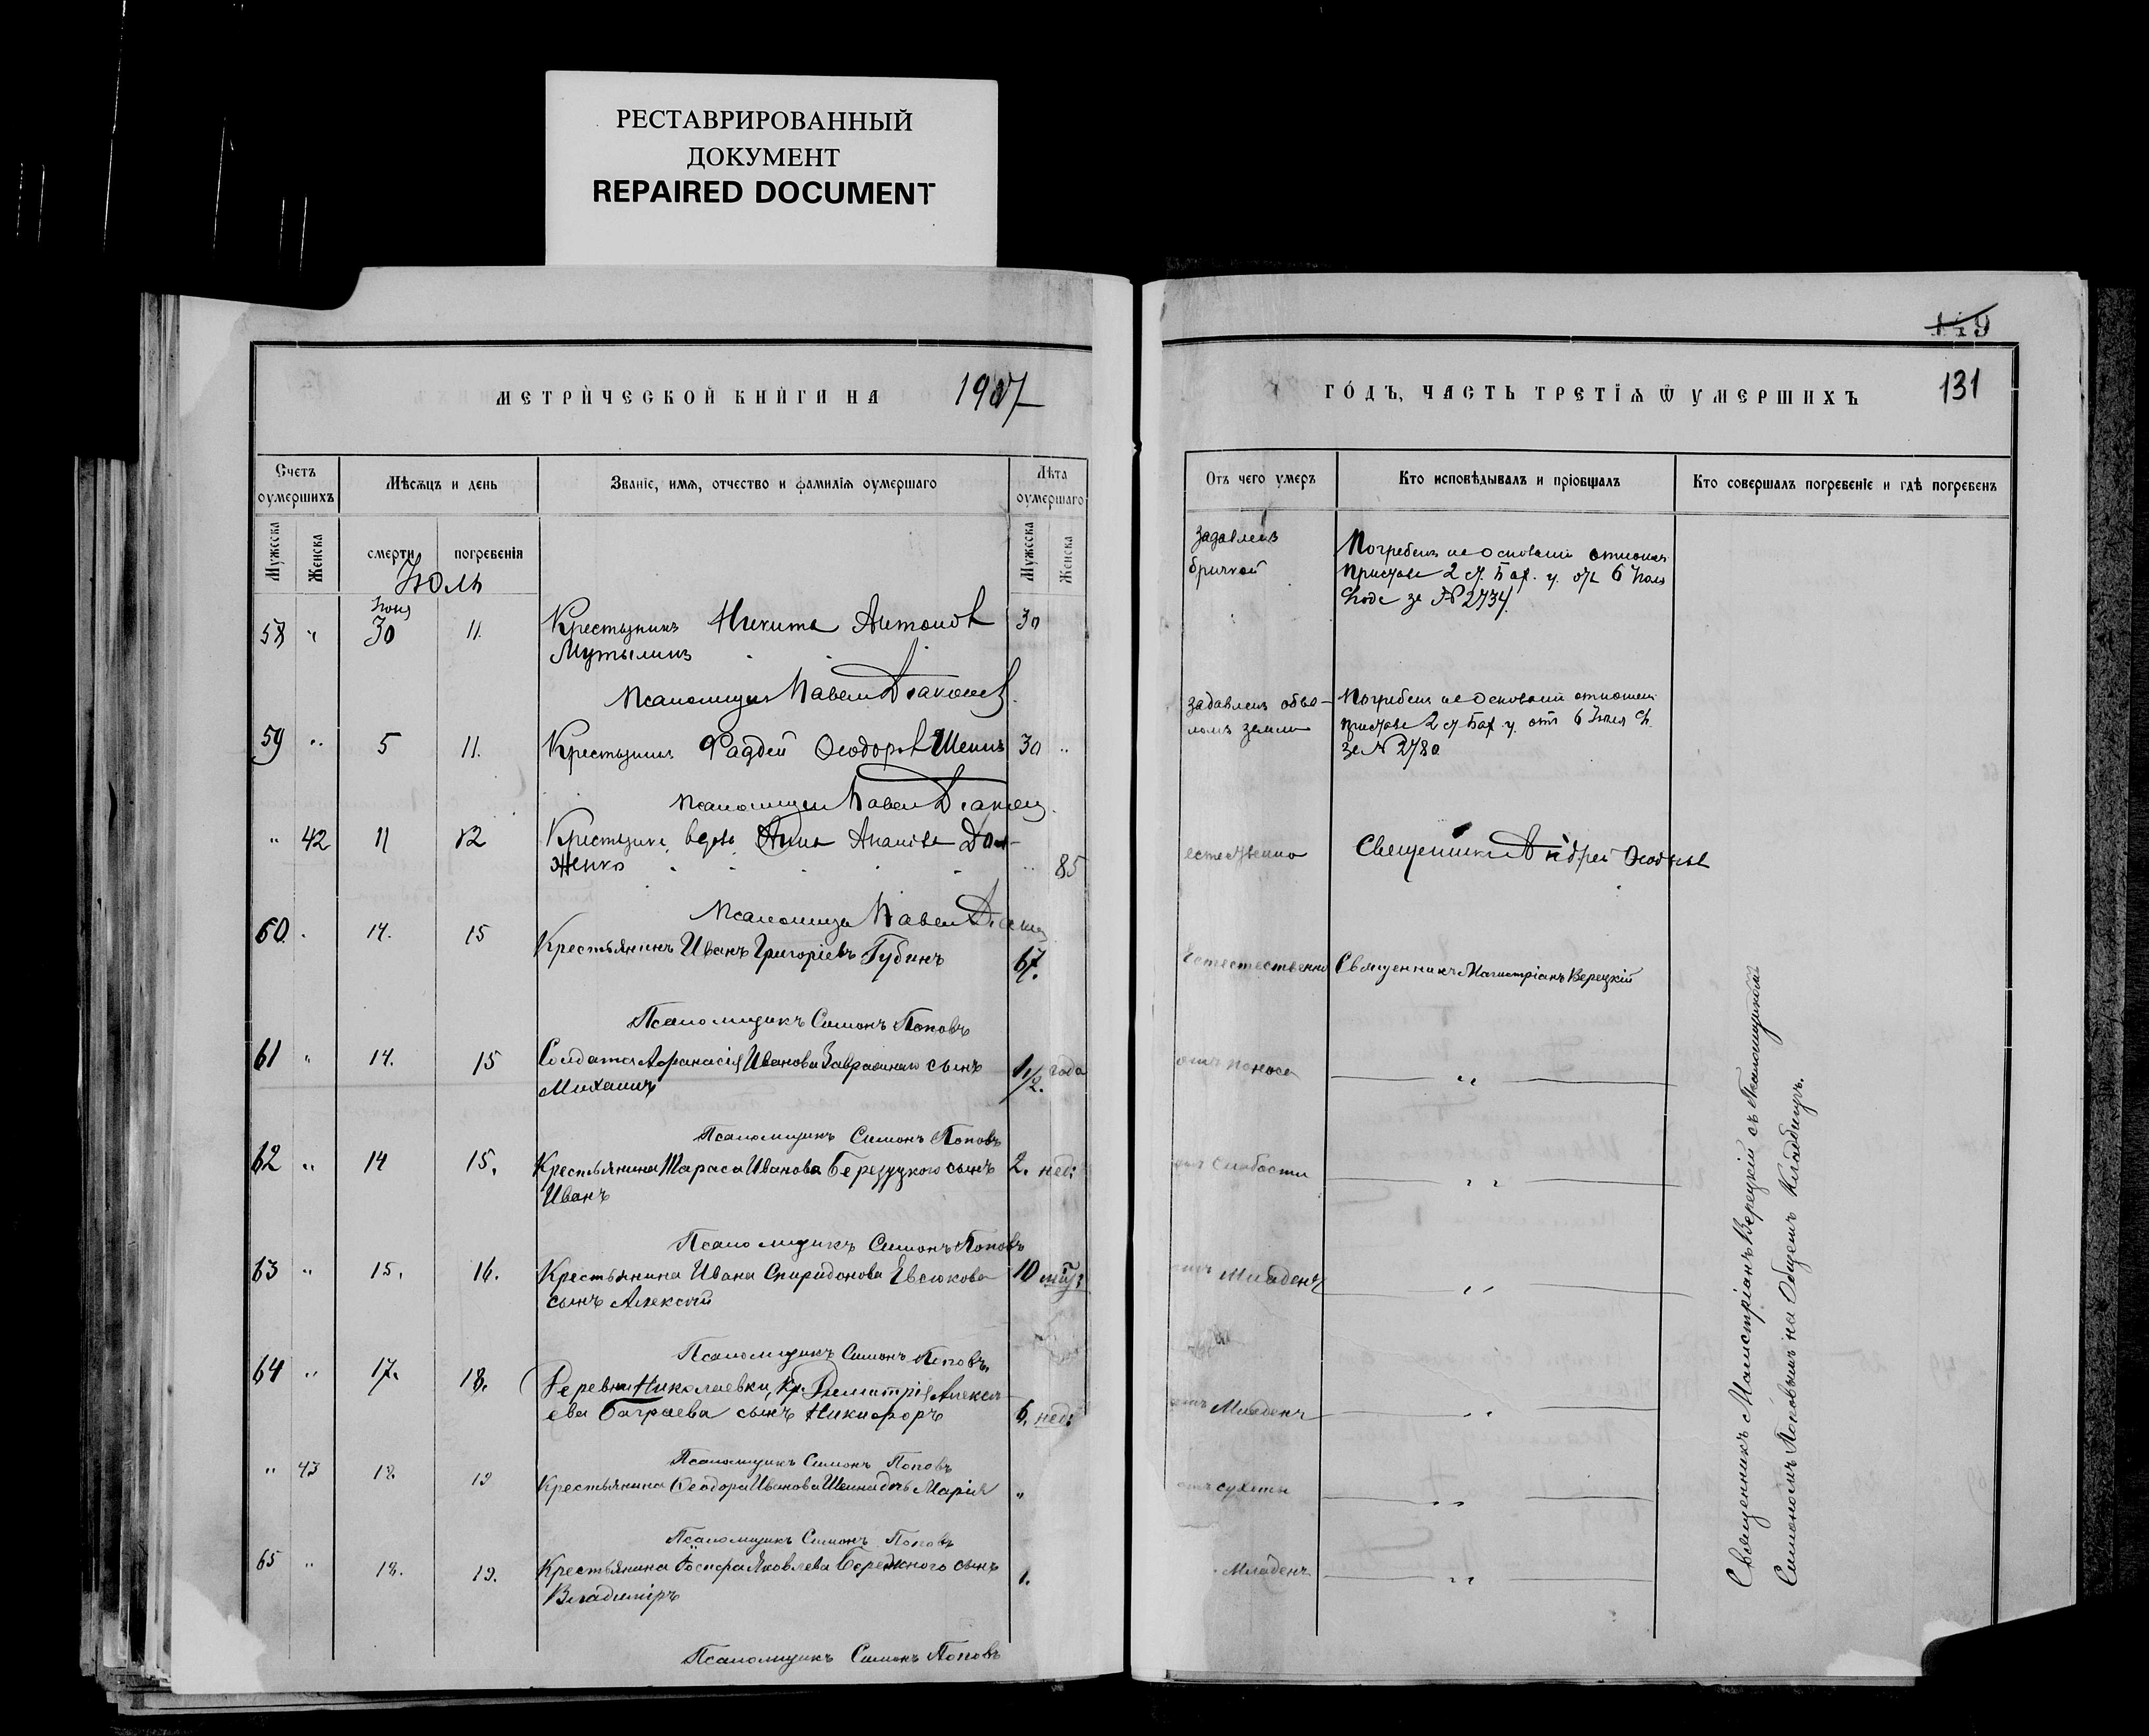 РЕСТАВРИРОВАННЫЙ
ДОКУМЕНТ
REPAIRED DOCUMENT
МЕТРИЧЕСКОЙ КНИГИ НА 1907
Счетъ оумершихъ
Мѣсяцъ и день
Званіе, имя, отчество и фамилія оумершаго
Лѣта оумершаго
Мужеска
Женска
смерти
погребенія
Мужеска
Женска
Іюль
Іюня
58 " 30 11. Крестьянинъ Никита Антоновъ 30
Мутылинъ
Псаломщикъ Павелъ
59 " 5 11. Крестьянинъ Фаддей Ѳеодоровъ Шеинъ 30 "
Псаломщикъ Павелъ
" 42 11 12 Крестьянка вдова Анна Дол-
женко " 85
Псаломщикъ Павелъ
60 . 14. 15 Крестьянинъ Иванъ Григоріевъ Губинъ 67.
Псаломщикъ Симонъ Поповъ
61 " 14. 15 Солдата Аѳанасія Иванова сынъ 1 1/2 года
Михаилъ
Псаломщикъ Симонъ Поповъ
62 " 14 15. Крестьянина Тараса Иванова сынъ 2. нед:
Иванъ
Псаломщикъ Симонъ Поповъ
63 " 15. 16. Крестьянина Ивана Спиридонова Евсюкова 10
сынъ Алексѣй
Псаломщикъ Симонъ Поповъ.
64 " 17. 18. Деревни Николаевки, кр. Димитрія Алексѣ-
ева Баграева сынъ Никифоръ 6. нед:
Псаломщикъ Симонъ Поповъ
" 43 18. 19 Крестьянина Ѳеодора Иванова Шеина дочь Марія "
Псаломщикъ Симонъ Поповъ
65 " 18. 19. Крестьянина Яковлева Бережного сынъ 1.
Владиміръ
Псаломщикъ Симонъ Поповъ
149
ГОДЪ, ЧАСТЬ ТРЕТІЯ Ѿ УМЕРШИХЪ 131
Отъ чего умеръ
Кто исповѣдывалъ и пріобщалъ
Кто совершалъ погребеніе и гдѣ погребенъ
задавленъ
бричкой
Погребенъ на основаніи отношен.
пристава 2 ст. Бах. у. отъ 6 Іюля
с. года за № 2734.
задавленъ обва-
ломъ земли
Погребенъ на основаніи отношен.
пристава 2 ст. Бах. у. отъ 6 Іюля с. г.
за № 2780
естественно Священникъ Андрей
Естественно Священникъ Магистріанъ Верецкій
отъ поноса "
отъ слабости "
отъ Младенч "
отъ Младенч "
отъ сухоты "
Младенч. "
Священникъ Магистріанъ Верецкій съ Псаломщикомъ
Симономъ Поповымъ на Общемъ Кладбищѣ.